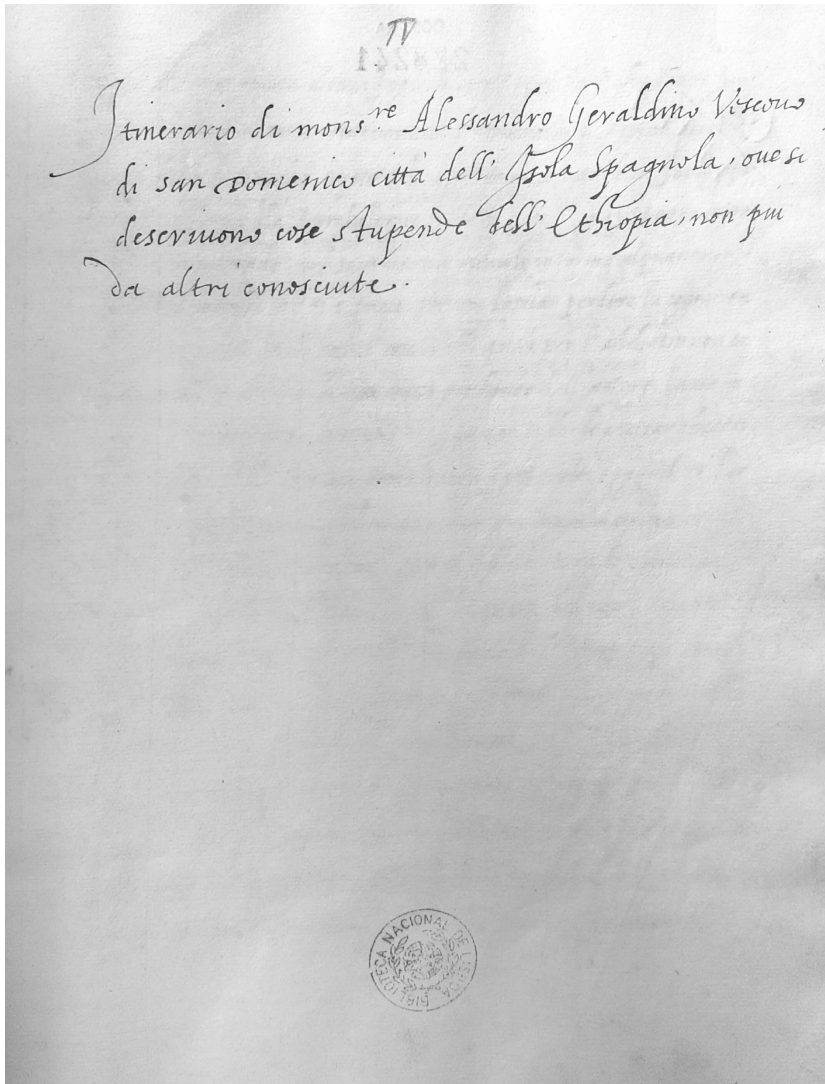 IV
Itinerario di mons.re Alessandro Geraldino Vescovo
di san Domenico città dell' Isola Spagnola, oue si
descriuono cose stupende dell' Ethiopia, non piu
da altri conosciute.
BIBLIOTECA NACIONAL DE LISBOA